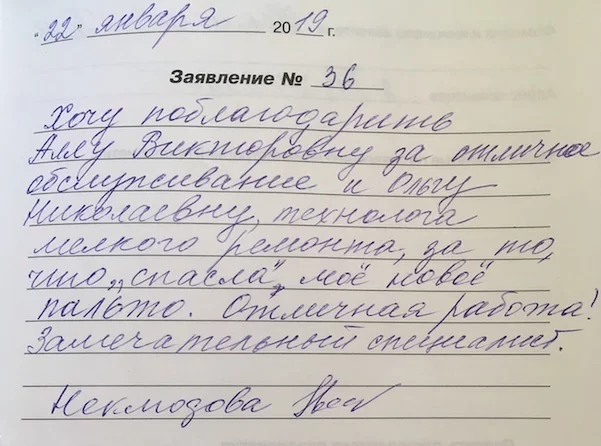 "22" января 2019 г.
Заявление № 36
Хочу поблагодарить
Аллу Викторовну за отличное
обслуживание и Ольгу
Николаевну, технолога
мелкого ремонта, за то,
что „спасла" моё новоё
пальто. Отличная работа!
Замечательный специалист.